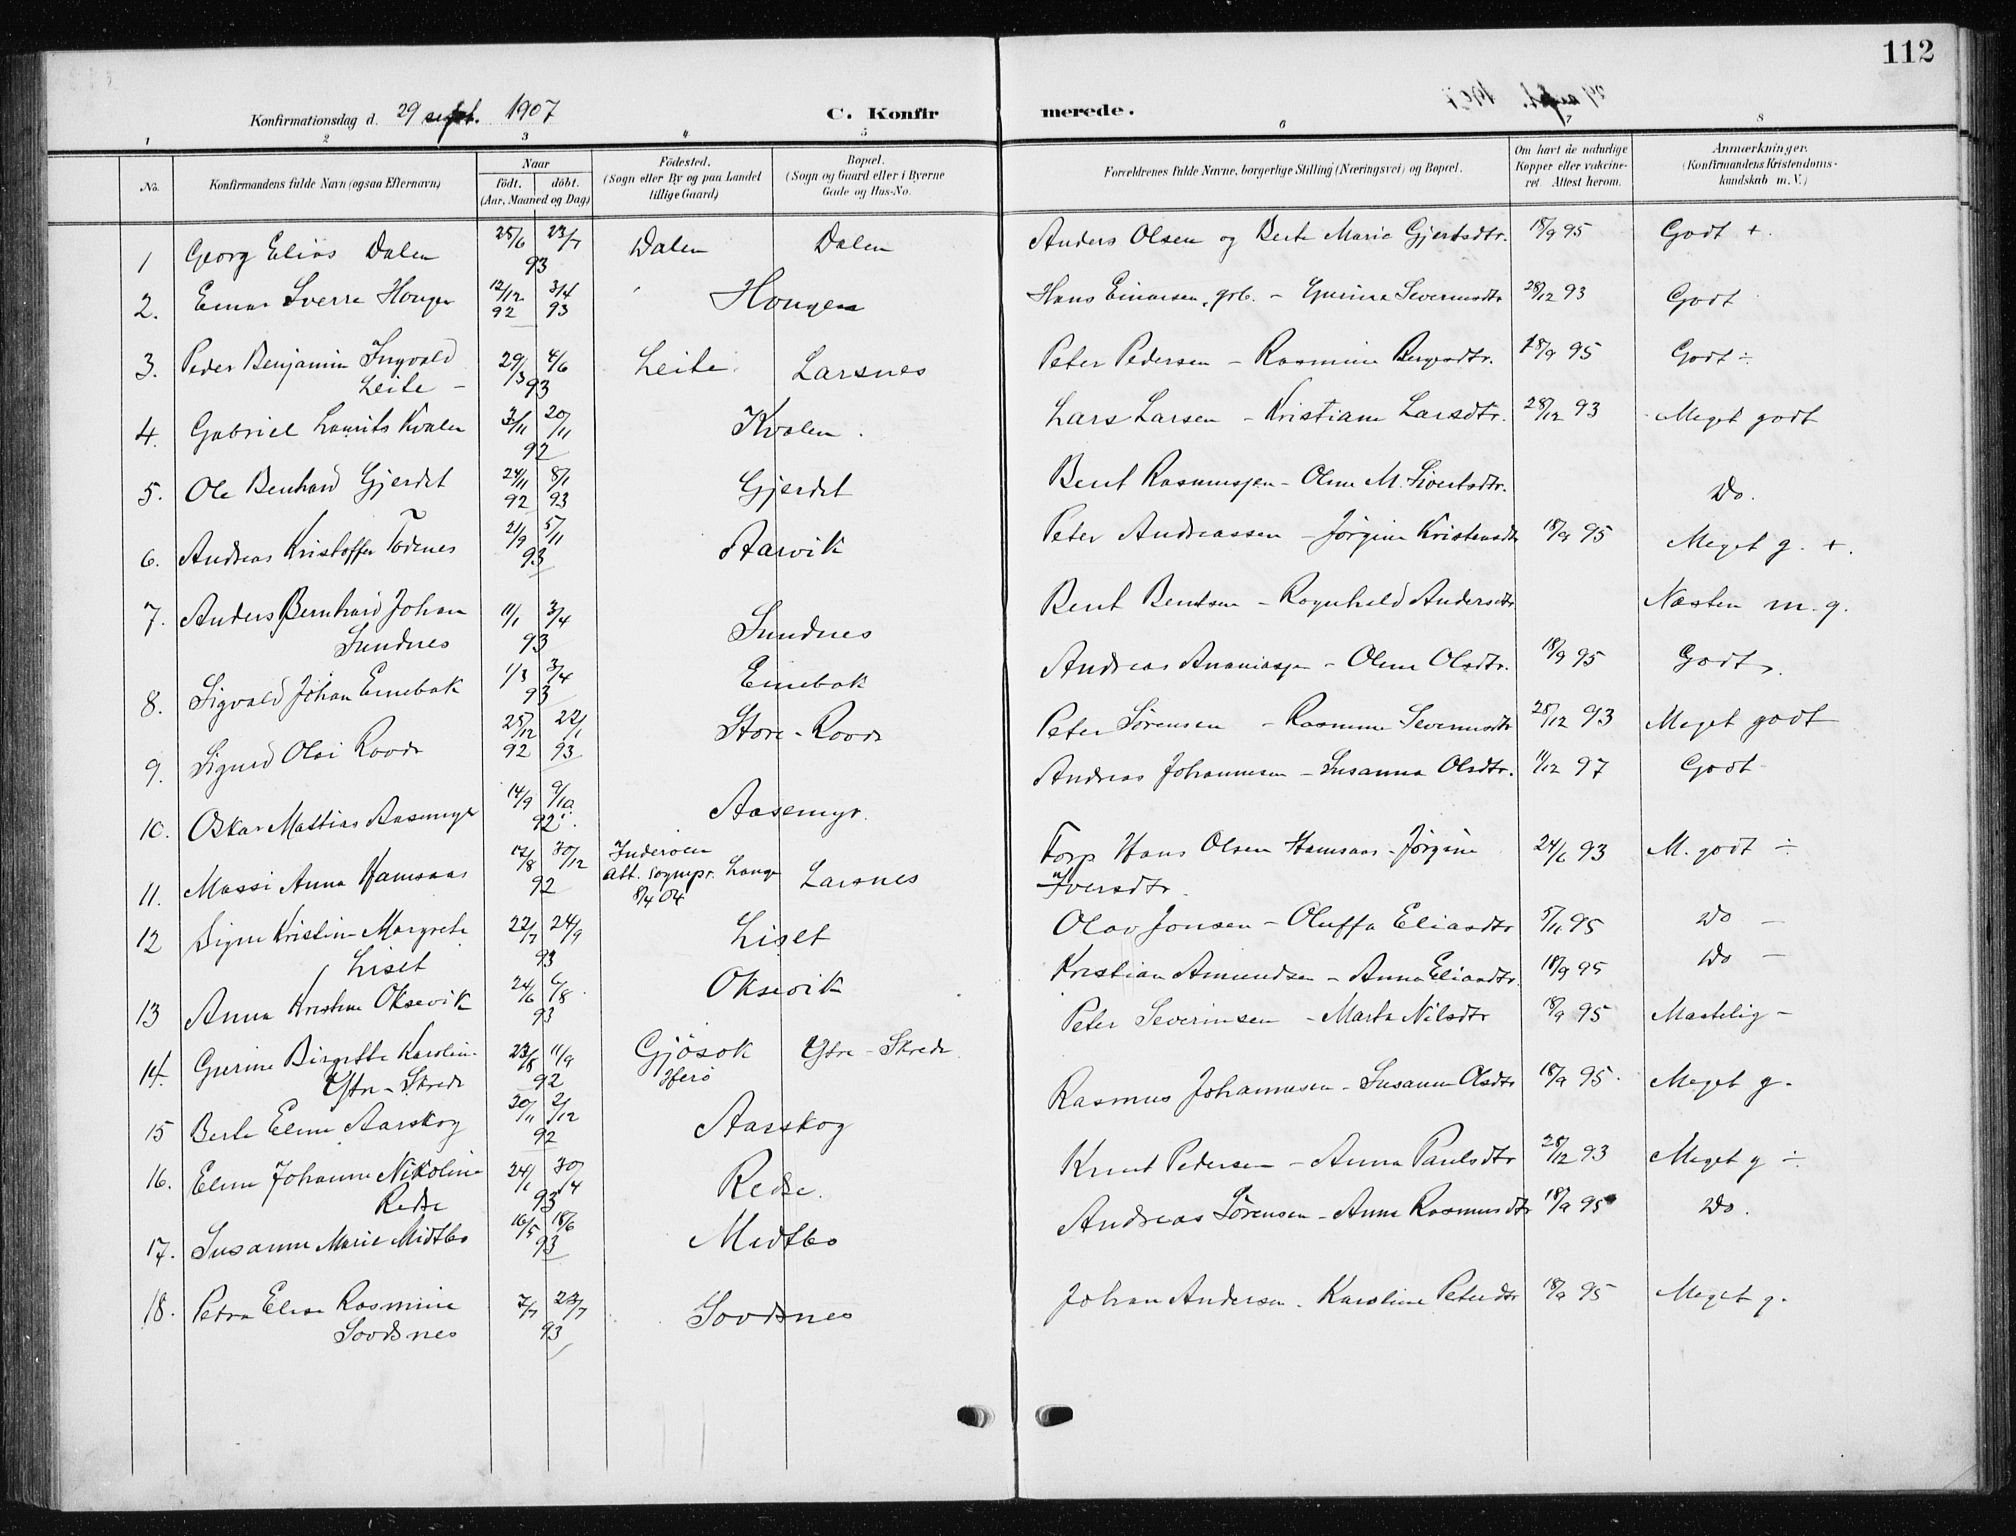 112
Konfirmationsdag d. 29 sept. 1907 C. Konfirmerede.
1 2 3 4 5 6 7 8
No. Konfirmandens fulde Navn (ogsaa Efternavn) Naar födt. döbt. (Aar, Maaned og Dag) Födested. (Sogn eller By og paa Landet tillige Gaard) Bopæl. (Sogn og Gaard eller i Byerne Gade og Hus-No. Forældrenes fulde Navne, borgerlige Stilling (Næringsvei) og Bopæl. Om havt de naturlige Kopper eller vakcineret. Attest herom. Anmærkninger. (Konfirmandens Kristendomskundskab m. V.)
1 Georg Elias Dalen 25/6 23/7 93 Dalen Dalen Anders Olsen og Berte Marie Gjertsdtr. 18/9 95 Godt +.
2. Einar Sverre Hougen 12/12 92 3/4 93 Hougen Hans Einarsen, grb. – Gurina Severinsdtr 28/12 93 Godt
3. Peder Benjamin Ingvald Leite – 29/3 4/6 93 Leite Larsnes Peter Pedersen – Rasmine Bergesdtr. 18/9 95 Godt ÷
4. Gabriel Laurits Kvalen 3/11 20/11 92 Kvalen. Lars Larsen – Kristiane Larsdtr. 28/12 93 Meget godt
5. Ole Benhard Gjerdet 24/11 92 8/1 93 Gjerdet Bent Rasmussen – Oline M. Sivertsdtr. Do.
6. Andreas Kristoffer Todnes 21/9 5/11 93 Aarvik Peter Andreassen – Jørgine Kristensdtr 18/9 95 Meget g. +.
7. Anders Bernhard Johan Sundnes 11/1 3/4 93 Sundnes Bent Bentsen – Ragnhild Andersdtr Næsten m. g.
8. Sigvald Johan Einebak 1/3 3/4 93 Einebak Andreas Ananiassen – Oline Olsdtr. 18/9 95 Godt.
9. Sigurd Olai Rovde 25/12 92 22/1 93 Store-Rovde Peter Sørensen – Rasmine Severinsdtr 28/12 93 Meget godt
10. Oskar Mattias Aasemyr 14/9 9/10 92 Aasemyr. Andreas Johannesen – Susanna Olsdtr. 11/12 97 Godt
11. Massi Anna Hamsaas 12/8 30/12 92 Inderøen Att. sognpr. Lange 8/4 04 Larsnes Torp Hans Olsen Hamsaas – Jørgine Iversdtr. 24/6 93 M. godt ÷
12 Signe Kristine Margrete Liset 22/7 24/9 93 Liset Olav Jonsen – Oluffa Eliasdtr 5/11 95 Do –
13 Anna Kristine Oksevik 24/6 6/8 93 Oksevik Kristian Amundsen – Anna Eliasdtr. 18/9 95 Do –
14. Gurine Birgitte Karoline Ytre-Skrede 23/8 11/9 92 Gjøsok Herø Ytre-Skrede. Peter Severinsen – Marta Nilsdtr 18/9 95 Maatelig –
15 Berte Eline Aarskog 20/11 2/12 92 Aarskog Rasmus Johannesen – Susanne Olsdtr 18/9 95. Meget g.
16. Eline Johanne Nikoline Redse 24/1 30/4 93 Redse. Knut Pedersen – Anna Paulsdtr 28/12 93 Meget g ÷
17. Susanne Marie Midtbø 16/5 18/6 93 Midtbø Andreas Sørensen – Anne Rasmusdtr 18/9 95 Do.
18. Petra Elise Rasmine Sovdsnes 7/7 23/7 93 Sovdsnes Johan Andersen. Karoline Petersdtr 18/9 95 Meget g.